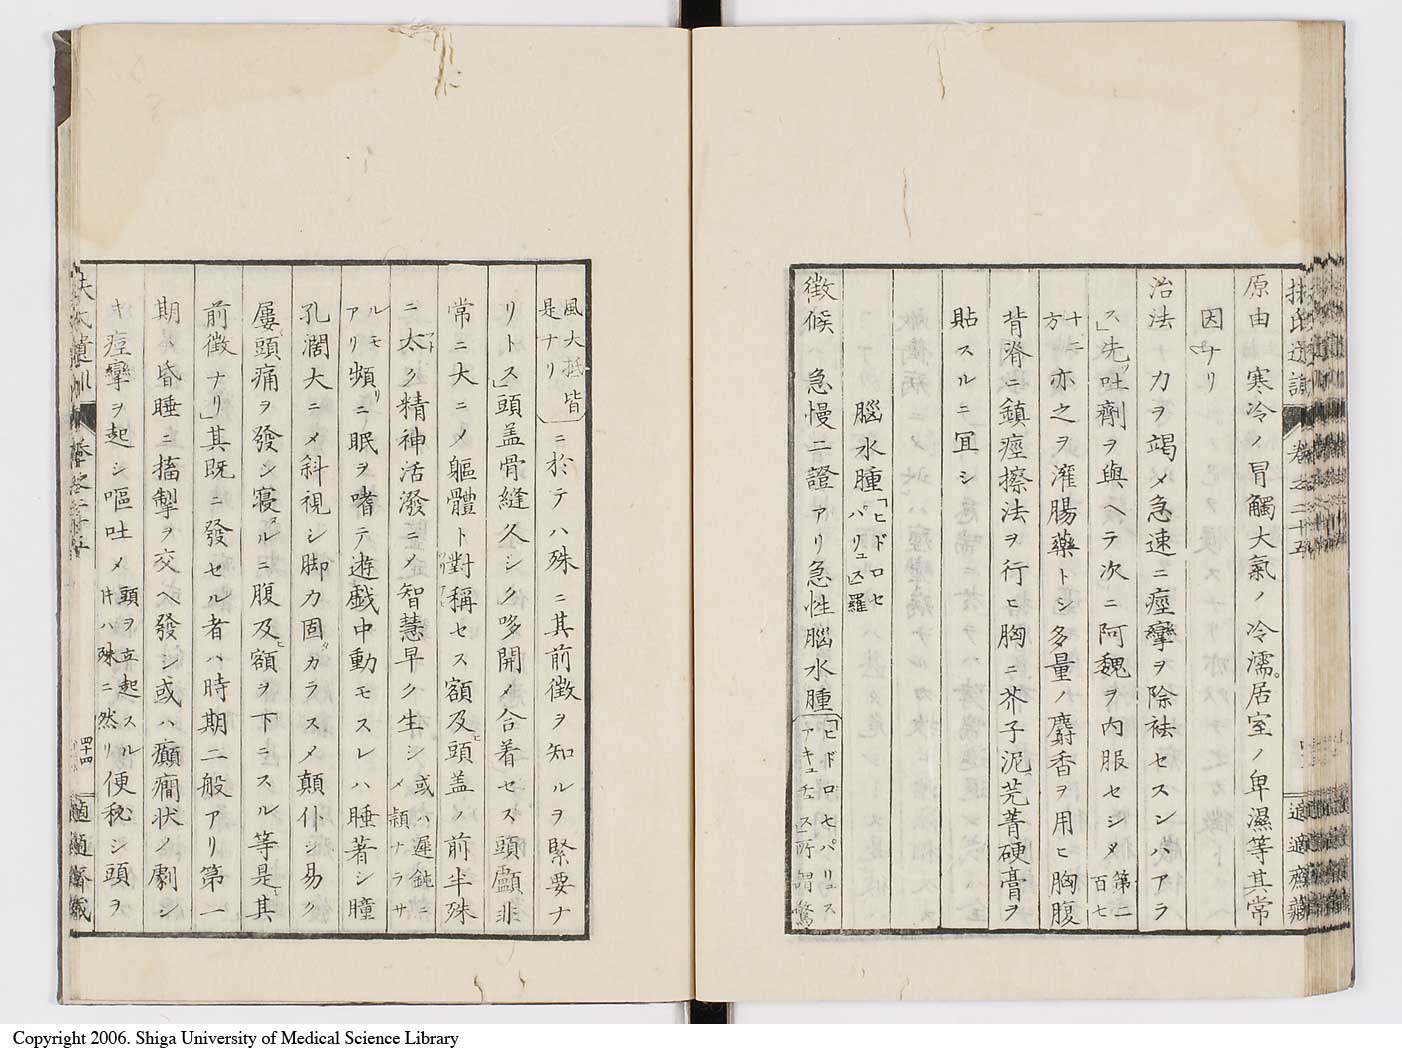 扶氏遺訓 卷之二十五 適適齋藏
原由 寒冷ノ冒觸大氣ノ冷濡居室ノ卑濕等其常
因ナリ
治法 力ヲ竭メ急速ニ痙攣ヲ除祛セスンハアラ
ス」先ツ吐劑ヲ與ヘテ次ニ阿魏ヲ內服セシメ 第二百七
十二方 亦之ヲ灌腸藥トシ多量ノ麝香ヲ用ヒ胸腹
背脊ニ鎮痙擦法ヲ行ヒ胸ニ芥子泥芫菁硬膏ヲ
貼スルニ冝シ
腦水腫 「ヒドロセパリュス」羅
徵候 急慢二證アリ急性腦水腫 「ヒドロセパリュスアキュチュス」所謂驚
風大抵皆是ナリ ニ於テハ殊ニ其前徵ヲ知ルヲ緊要ナ
リトス」頭盖骨縫久シク哆開メ合着セス頭顱非
常ニ大ニメ軀體ト對稱セス額及ヒ頭盖ノ前半殊
ニ太ク精神活潑ニメ智慧早ク生シ 或ハ遲鈍ニメ頴ナラサ
ルモアリ 頻リニ眠ヲ嗜テ遊戯中動モスレハ睡着シ瞳
孔濶大ニメ斜視シ脚力固カラスメ顛仆シ易ク
屢頭痛ヲ發シ寝ルニ腹及ヒ額ヲ下ニスル等是其
前徵ナリ」其既ニ發セル者ハ時期二般アリ第一
期ハ昏睡ニ搐掣ヲ交ヘ發シ或ハ癲癎状ノ劇シ
キ痙攣ヲ起シ嘔吐メ 頭ヲ立起スル片ハ殊ニ然リ 便秘シ頭ヲ
四十四 適適齋藏